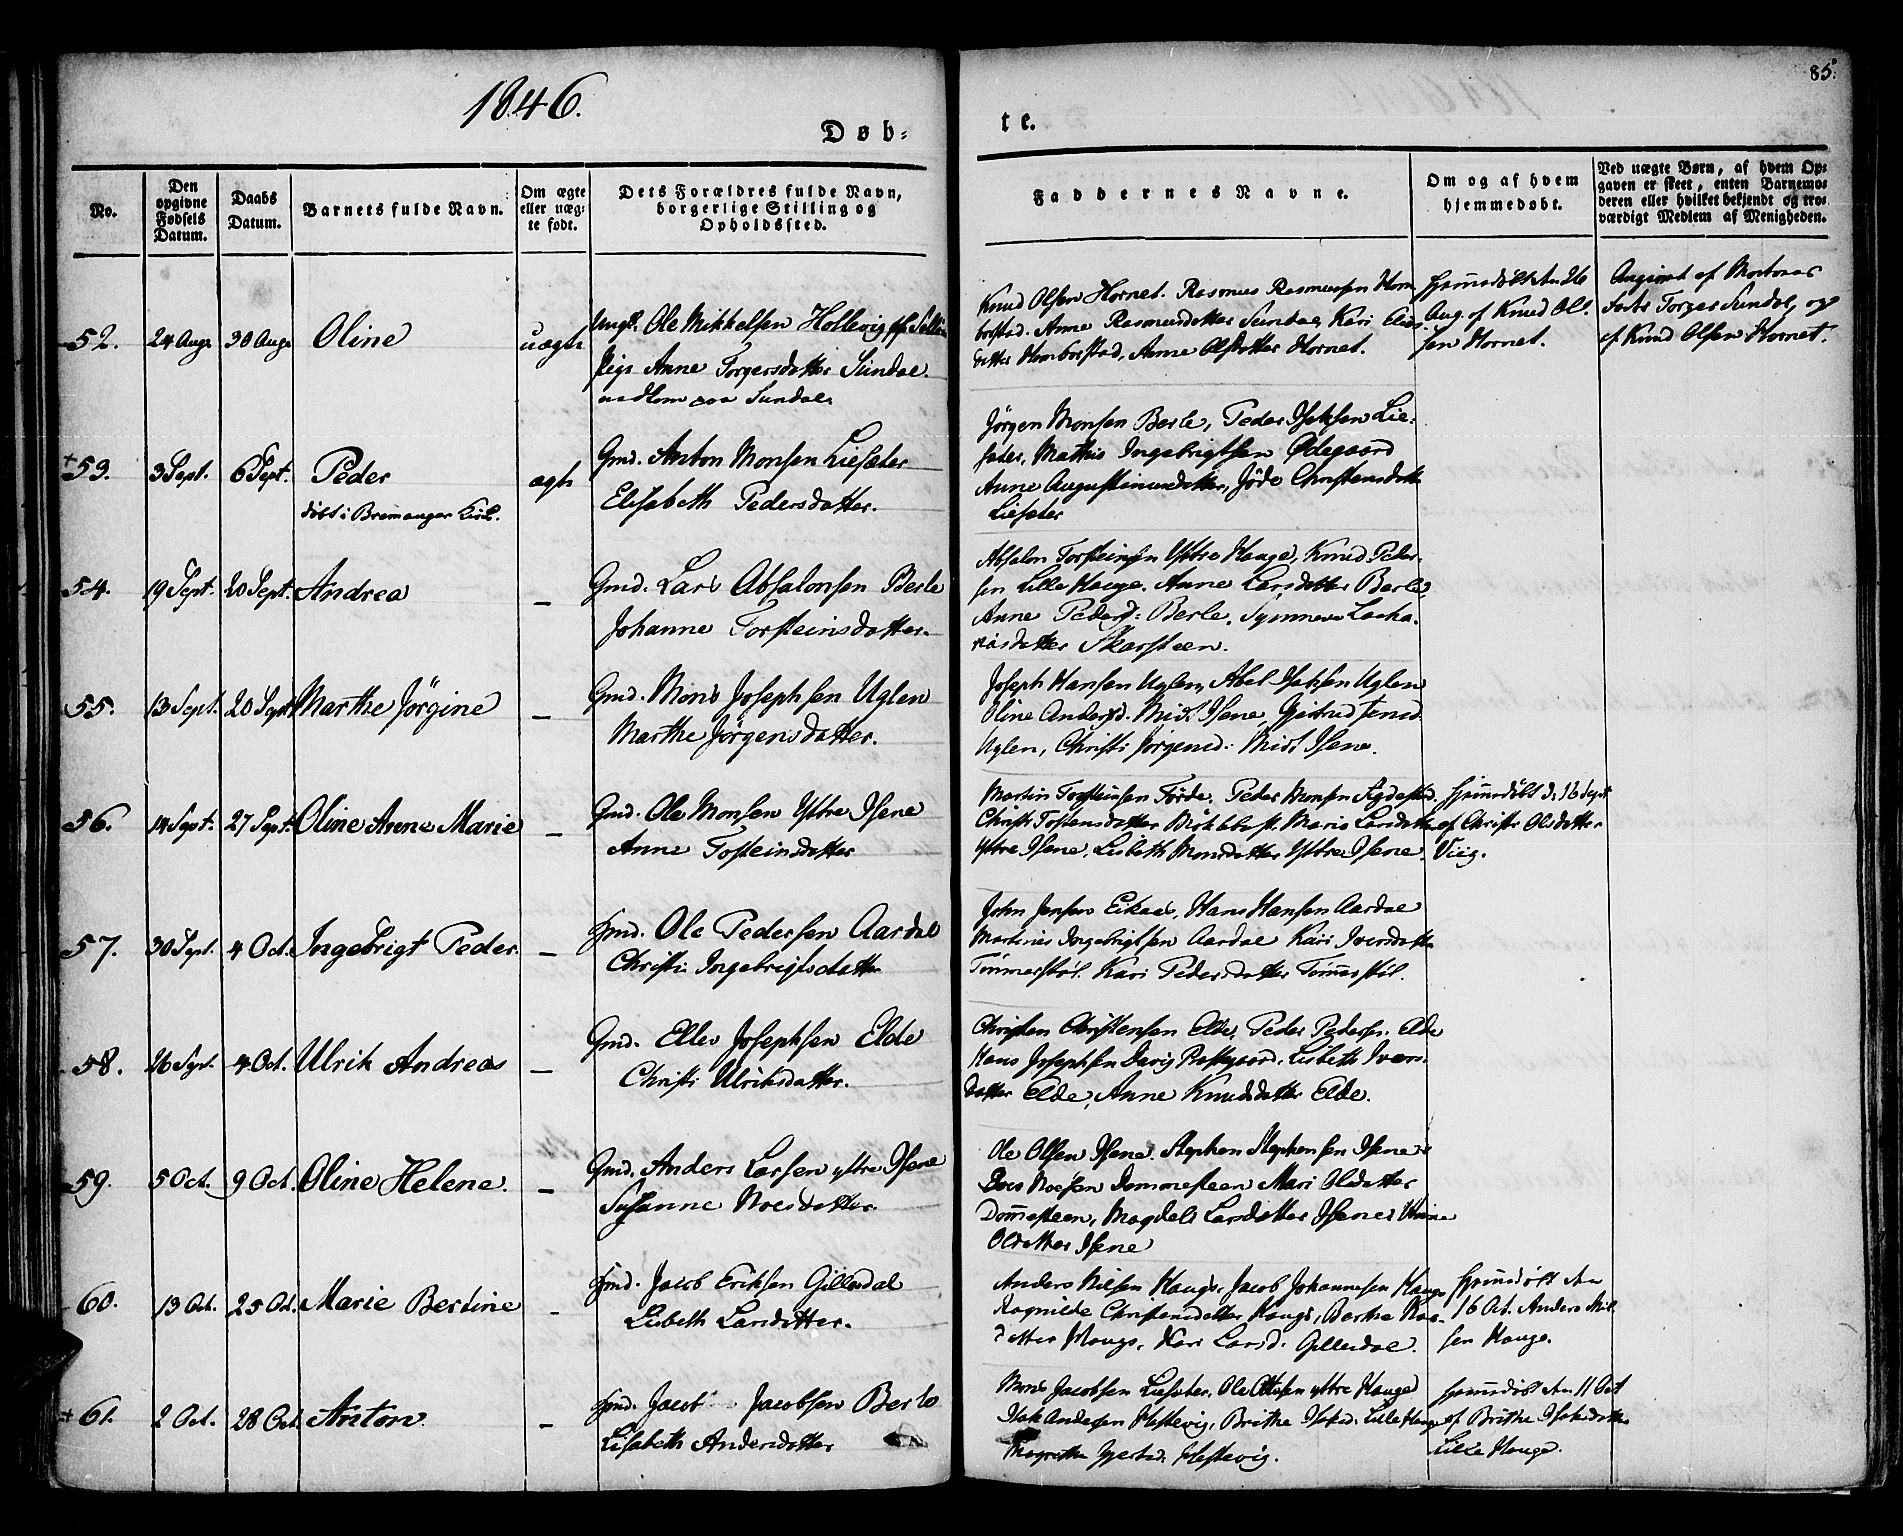 1846.
85.
Døb-
te.
No.
Den opgivne Fødsels Datum.
Daabs Datum.
Barnets fulde Navn.
Om ægte eller uæg-te født.
Dets Forældres fulde Navn, borgerlige Stilling og Opholdssted.
Faddernes Navne.
Om og af hvem hjemmedøbt.
Ved uægte Børn, af hvem Op-gaven er skeet, enten Barnemo-deren eller hvilket bekjendt og tro-værdigt Medlem af Menigheden.
52.
24 Aug.
30 Aug.
Oline
uægte
Ungk. Ole Mikkelsen Hollevig
Pige Anne Torgersdatter Sundal
paa Sundal
Knud Olsen Hornet. Rasmus Rasmussen Hom-
borstad. Anne Rasmusdatter Sundal, Kari Elias-
datter Homborstad, Anne Olsdatter Hornet.
Hjemmedøbt den 26
Aug. af Knud Ol-
sen Hornet.
Angivet af
Torger Sundal, og
af Knud Olsen Hornet.
+ 53.
3 Sept.
6 Sept.
Peder
døbt i Bremanger Kirke.
ægte
Gmd. Anton Monsen Liesæter
Elisabeth Pedersdatter.
Jörgen Monsen Berle, Peder Isaksen Lie-
sæter, Mathis Ingebrigtsen Ødegaard
Anne Augustinusdatter, Jöde Christensdatter
Liesæter
54.
19 Sept.
20 Sept.
Andrea
—
Gmd. Lars Absalonsen Berle
Johanne Torsteinsdatter.
Absalon Torsteinsen Ystre Hauge, Knud Peder-
sen Lille Hauge. Anne Larsdatter Berle,
Anne Pedersd: Berle. Synneve Zacha-
riasdatter Skarsteen.
55.
13 Sept.
20 Sept.
Marthe Jörgine
—
Gmd. Mons Josephsen Uglen
Marthe Jörgensdatter.
Joseph Hansen Uglen, Abel Isaksen Uglen
Oline Andersd. Midt Isene, Gjertrud
Uglen, Christi Jörgensd: Midt Isene.
56.
14 Sept.
27 Sept.
Oline Anne Marie
—
Gmd. Ole Monsen Ystre Isene
Anne Tosteinsdatter
Martin Torsteinsen Förde. Peder Monsen Agdestad.
Christi Tostensdatter Marie Larsdatter
Ystre Isene, Lisbeth Monsdatter Ystre Isene.
Hjemmedöbt d. 16 Sept.
af Christi Olsdatter
Viig.
57.
30 Sept.
4 Oct.
Ingebrigt Peder.
—
Gmd. Ole Pedersen Aardal
Christi Ingebrigtsdatter
John Jensen Eikaas, Hans Hansen Aardal
Martinus Ingebrigtsen Aardal Kari Iversdatter
Tömmerstöl. Kari Pedersdatter Tömerstöl.
58.
26 Sept.
4 Oct.
Ulrik Andreas
—
Gmd. Ellev Josephsen Elde
Christi Ulriksdatter.
Christen Christensen Elde, Peder Peders. Elde
Hans Josephsen Davig Præstgaard, Lisbeth Ivers-
datter Elde, Anne Knudsdatter Elde.
59.
5 Oct.
9 Oct.
Oline Helene.
—
Gmd. Anders Larsen ystre Isene
Susanne Noesdatter.
Ole Olsen Isene. Stephen Stephensen Isene
Noesen Dommesteen Mari Olsdatter
Domesteen, Magdeli Larsdatter Isene
Olsdatter Isene
60.
13 Oct.
25 Oct.
Marie Bertine
—
Gmd. Jacob Eriksen Gilledal
Lisbeth Larsdatter.
Anders Nilsen Hauge. Jacob Johannesen Hauge
Ragnilde Christensdatter Hauge, Berthe
datter Hauge, Kari Larsd. Gilledal.
Hjemmedöbt den
16 Oct. Anders Nil-
sen Hauge.
+ 61.
2 Oct.
28 Oct.
Anton
—
Gmd. Jacob Jacobsen Berle
Lisabeth Andersdatter
Mons Jacobsen Liesæter. Ole Ottesen ystre Hauge
Isak Andersen Hestevig, Brithe Isaksd. Lille Hauge
Magrethe Hestevig.
Hjemmedöbt den 11 Oct
af Brithe Isaksdatter
Lille Hauge.